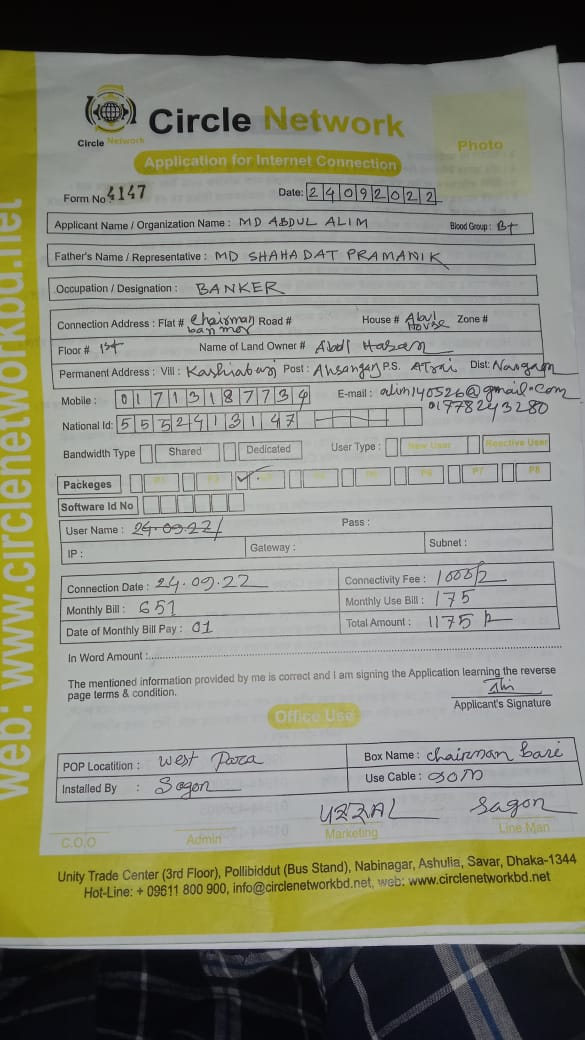 Circle Network
Circle Network
Photo
Application for Internet Connection
Form No 4147
Date: 24092022
Applicant Name / Organization Name : MD ABDUL ALIM Blood Group : B+
Father's Name / Representative : MD SHAHADAT PRAMANIK
Occupation / Designation : BANKER
Connection Address : Flat # Chairman Road # House # Abul House Zone #
Floor # 1st Name of Land Owner # Abul Hasan
Permanent Address : Vill : Kashiabari Post : Ahsanganj P.S. Atrai Dist: Naogaon
Mobile : 01713187734 E-mail : alim140526@gmail.com
01778243280
National Id: 5552413147
Bandwidth Type Shared Dedicated User Type : New User Reactive User
Packeges P1 P2 P3 P4 P5 P6 P7 P8
Software Id No
User Name : 24.09.22 Pass :
IP : Gateway : Subnet :
Connection Date : 24.09.22 Connectivity Fee : 1000/
Monthly Bill : 651 Monthly Use Bill : 175
Date of Monthly Bill Pay : 01 Total Amount : 1175
In Word Amount :
The mentioned information provided by me is correct and I am signing the Application learning the reverse
page terms & condition.
Applicant's Signature
Office Use
POP Locatition : West Para Box Name : Chairman bari
Installed By : Sagon Use Cable : 90m
UZZAL Sagon
C.O.O Admin Marketing Line Man
Unity Trade Center (3rd Floor), Pollibiddut (Bus Stand), Nabinagar, Ashulia, Savar, Dhaka-1344
Hot-Line: + 09611 800 900, info@circlenetworkbd.net, web: www.circlenetworkbd.net
web: www.circlenetworkbd.net